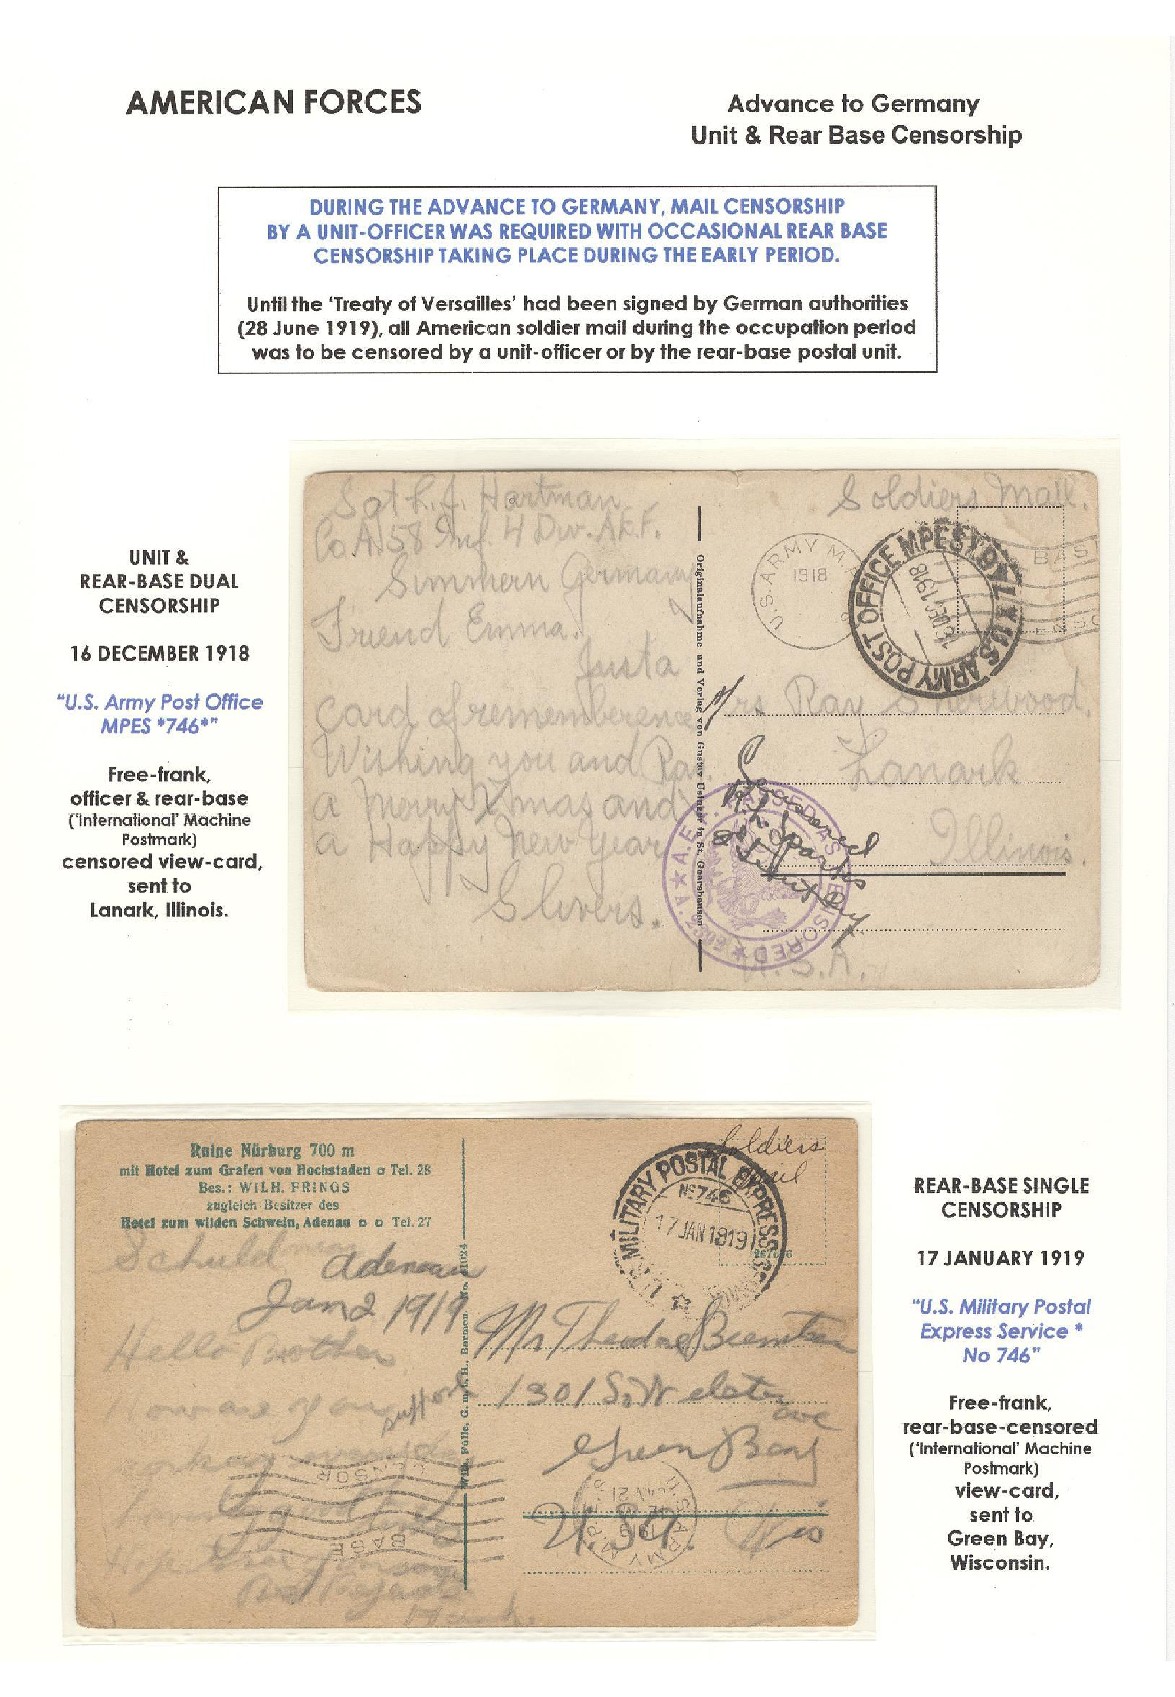 AMERICAN FORCES
Advance to Germany
Unit & Rear Base Censorship
DURING THE ADVANCE TO GERMANY, MAIL CENSORSHIP
BY A UNIT-OFFICER WAS REQUIRED WITH OCCASIONAL REAR BASE
CENSORSHIP TAKING PLACE DURING THE EARLY PERIOD.
Until the 'Treaty of Versailles' had been signed by German authorities
(28 June 1919), all American soldier mail during the occupation period
was to be censored by a unit-officer or by the rear-base postal unit.
UNIT &
REAR-BASE DUAL
CENSORSHIP
16 DECEMBER 1918
"U.S. Army Post Office
MPES *746*"
Free-frank,
officer & rear-base
('International' Machine
Postmark)
censored view-card,
sent to
Lanark, Illinois.
Sgt L.J. Hartman
Co A 58 Inf 4 Div. A.E.F.
Simmern Germany
Friend Emma.
Justa
Card of rememberence
Wishing you and Ray
a Merry Xmas and
a Happy New Year
Slivers.
Soldiers Mail.
U.S. ARMY M.P.
1918
BASE
U.S. ARMY POST OFFICE MPES
DEC 1918
Mrs Ray Sherwood
Lanark
Illinois.
U.S.A.
Censored
A.E.F. PASSED AS CENSORED
Originalaufnahme und Verlag von Gustav in St. Goarshausen
Ruine Nürburg 700 m
mit Hotel zum Grafen von Hochstaden o Tel. 28
Bes.: WILH. FRINGS
zugleich Besitzer des
Hotel zum wilden Schwein, Adenau o o Tel. 27
Schuld
Adenau
Jan 2 1919
Hello Brother
How are you
Soldiers
Mail
U.S. MILITARY POSTAL EXPRESS SERVICE
No 746
17 JAN 1919
Mr Theodore
1301 So
ave
Green Bay
Wis
U.S.A.
CENSOR
BASE
U.S. ARMY
1919
REAR-BASE SINGLE
CENSORSHIP
17 JANUARY 1919
"U.S. Military Postal
Express Service *
No 746"
Free-frank,
rear-base-censored
('International' Machine
Postmark)
view-card,
sent to
Green Bay,
Wisconsin.